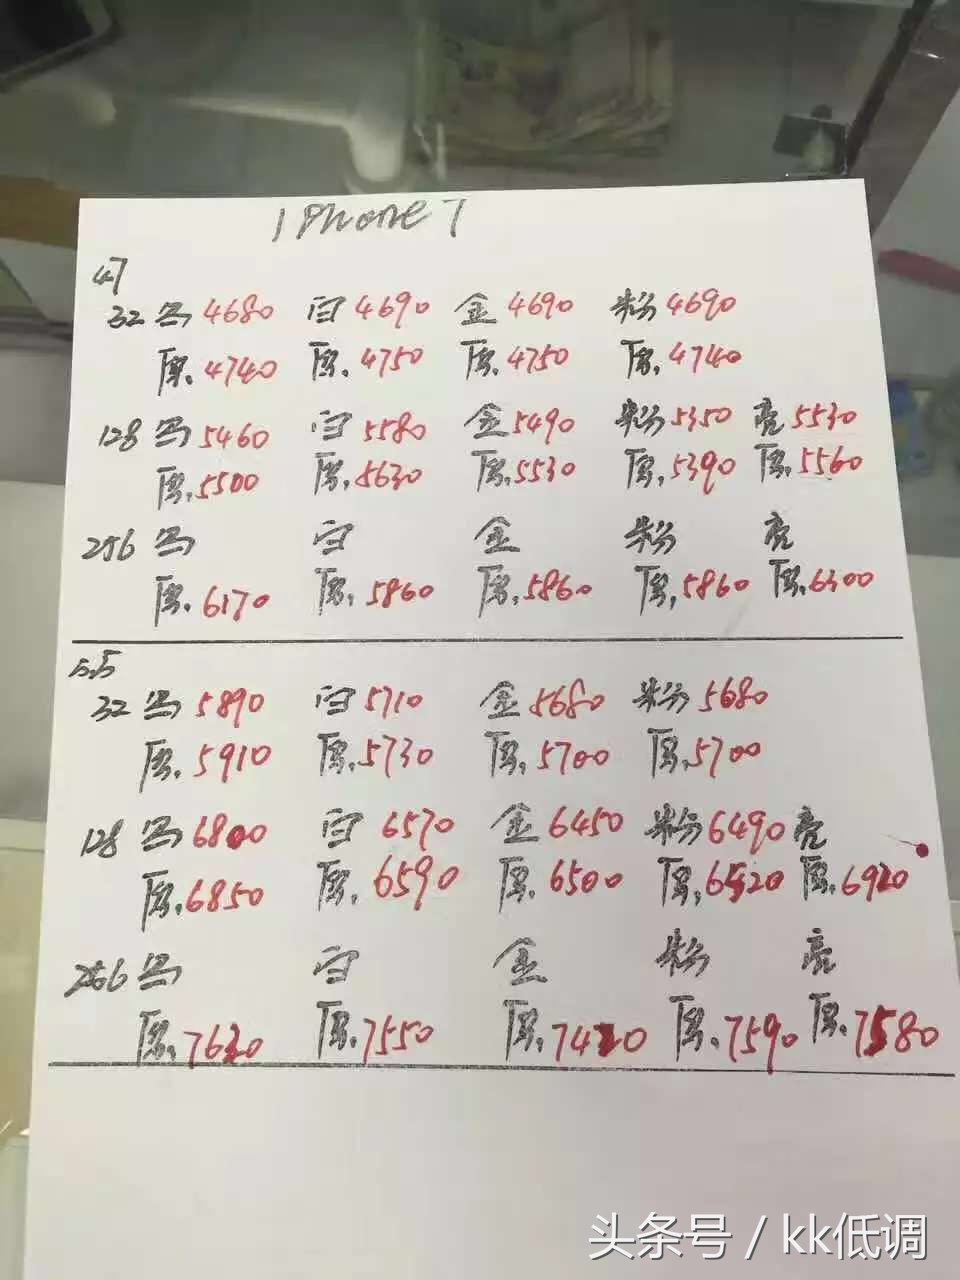 iPhone 7
4.7
32 黑 4680 白 4690 金 4690 粉 4690
原.4740 原.4750 原.4750 原.4740
128 黑 5460 白 5580 金 5490 粉 5350 亮 5530
原.5500 原.5630 原.5530 原.5390 原.5560
256 黑 白 金 粉 亮
原.6170 原.5860 原.5860 原.5860 原.6300
5.5
32 黑 5890 白 5710 金 5680 粉 5680
原.5910 原.5730 原.5700 原.5700
128 黑 6800 白 6570 金 6450 粉 6490 亮
原.6850 原.6590 原.6500 原.6520 原.6920
256 黑 白 金 粉 亮
原.7620 原.7550 原.7420 原.7590 原.7580
头条号 / kk低调